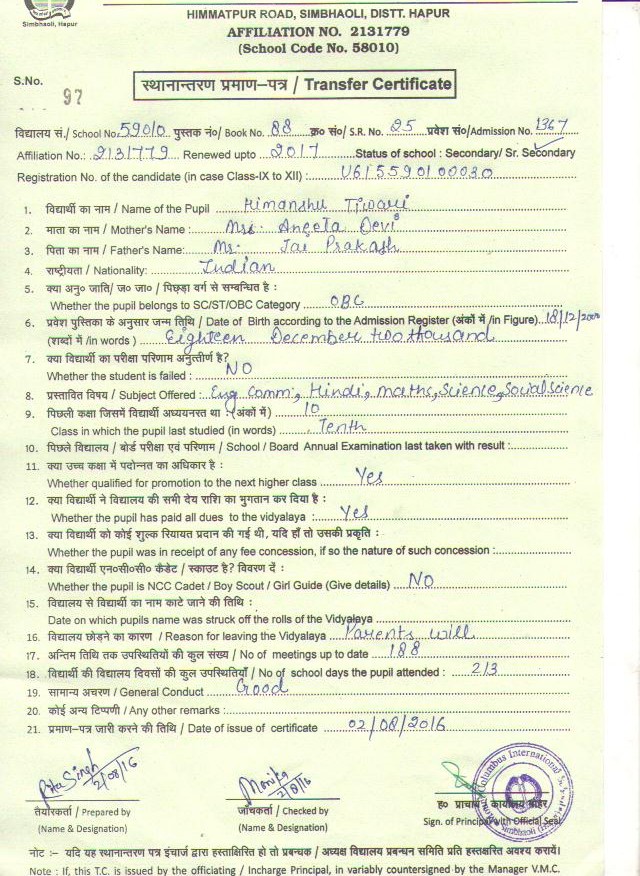 Simbhaoli, Hapur
HIMMATPUR ROAD, SIMBHAOLI, DISTT. HAPUR
AFFILIATION NO. 2131779
(School Code No. 58010)
S.No. 97
स्थानान्तरण प्रमाण-पत्र / Transfer Certificate
विद्यालय सं./ School No. 59010 पुस्तक नं०/ Book No. 88 क्र० सं०/ S.R. No. 25 प्रवेश सं०/Admission No. 1367
Affiliation No.: 2131779 Renewed upto 2017 Status of school : Secondary/ Sr. Secondary
Registration No. of the candidate (in case Class-IX to XII) : U615590100030
1. विद्यार्थी का नाम / Name of the Pupil Himanshu Tiwari
2. माता का नाम / Mother's Name : Mrs. Angeta Devi
3. पिता का नाम / Father's Name: Mr. Jai Prakash
4. राष्ट्रीयता / Nationality: Indian
5. क्या अनु० जाति/ ज० जा० / पिछड़ा वर्ग से सम्बन्धित है :
Whether the pupil belongs to SC/ST/OBC Category OBC
6. प्रवेश पुस्तिका के अनुसार जन्म तिथि / Date of Birth according to the Admission Register (अंकों में /in Figure) 18/12/2000
(शब्दों में /in words ) Eighteen December two thousand
7. क्या विद्यार्थी का परीक्षा परिणाम अनुत्तीर्ण है?
Whether the student is failed : NO
8. प्रस्तावित विषय / Subject Offered : Eng Comm, Hindi, maths, Science, Social Science
9. पिछली कक्षा जिसमें विद्यार्थी अध्ययनरत था :(अंकों में) 10
Class in which the pupil last studied (in words) Tenth
10. पिछले विद्यालय / बोर्ड परीक्षा एवं परिणाम / School / Board Annual Examination last taken with result :
11. क्या उच्च कक्षा में पदोन्नत का अधिकार है :
Whether qualified for promotion to the next higher class Yes
12. क्या विद्यार्थी ने विद्यालय की सभी देय राशि का भुगतान कर दिया है :
Whether the pupil has paid all dues to the vidyalaya : Yes
13. क्या विद्यार्थी को कोई शुल्क रियायत प्रदान की गई थी, यदि हाँ तो उसकी प्रकृति :
Whether the pupil was in receipt of any fee concession, if so the nature of such concession :
14. क्या विद्यार्थी एन०सी०सी० कैडेट / स्काउट है? विवरण दें :
Whether the pupil is NCC Cadet / Boy Scout / Girl Guide (Give details) NO
15. विद्यालय से विद्यार्थी का नाम काटे जाने की तिथि :
Date on which pupils name was struck off the rolls of the Vidyalaya
16. विद्यालय छोड़ने का कारण / Reason for leaving the Vidyalaya Parents will
17. अन्तिम तिथि तक उपस्थितियों की कुल संख्या / No of meetings up to date 188
18. विद्यार्थी की विद्यालय दिवसों की कुल उपस्थितियाँ / No of school days the pupil attended : 213
19. सामान्य अचरण / General Conduct Good
20. कोई अन्य टिप्पणी / Any other remarks :
21. प्रमाण-पत्र जारी करने की तिथि / Date of issue of certificate 02/08/2016
Singh 2/08/16
Monika 2/8/16
Columbus International School
Simbhaoli
तैयारकर्ता / Prepared by
(Name & Designation)
जाँचकर्ता / Checked by
(Name & Designation)
ह० प्राचार्य / कार्यालय मोहर
Sign. of Principal with Official Seal
नोट :– यदि यह स्थानान्तरण पत्र इंचार्ज द्वारा हस्ताक्षिरित हो तो प्रबन्धक / अध्यक्ष विद्यालय प्रबन्धन समिति प्रति हस्तक्षरित अवश्य करायें।
Note : If, this T.C. is issued by the officiating / Incharge Principal, in variably countersigned by the Manager V.M.C.